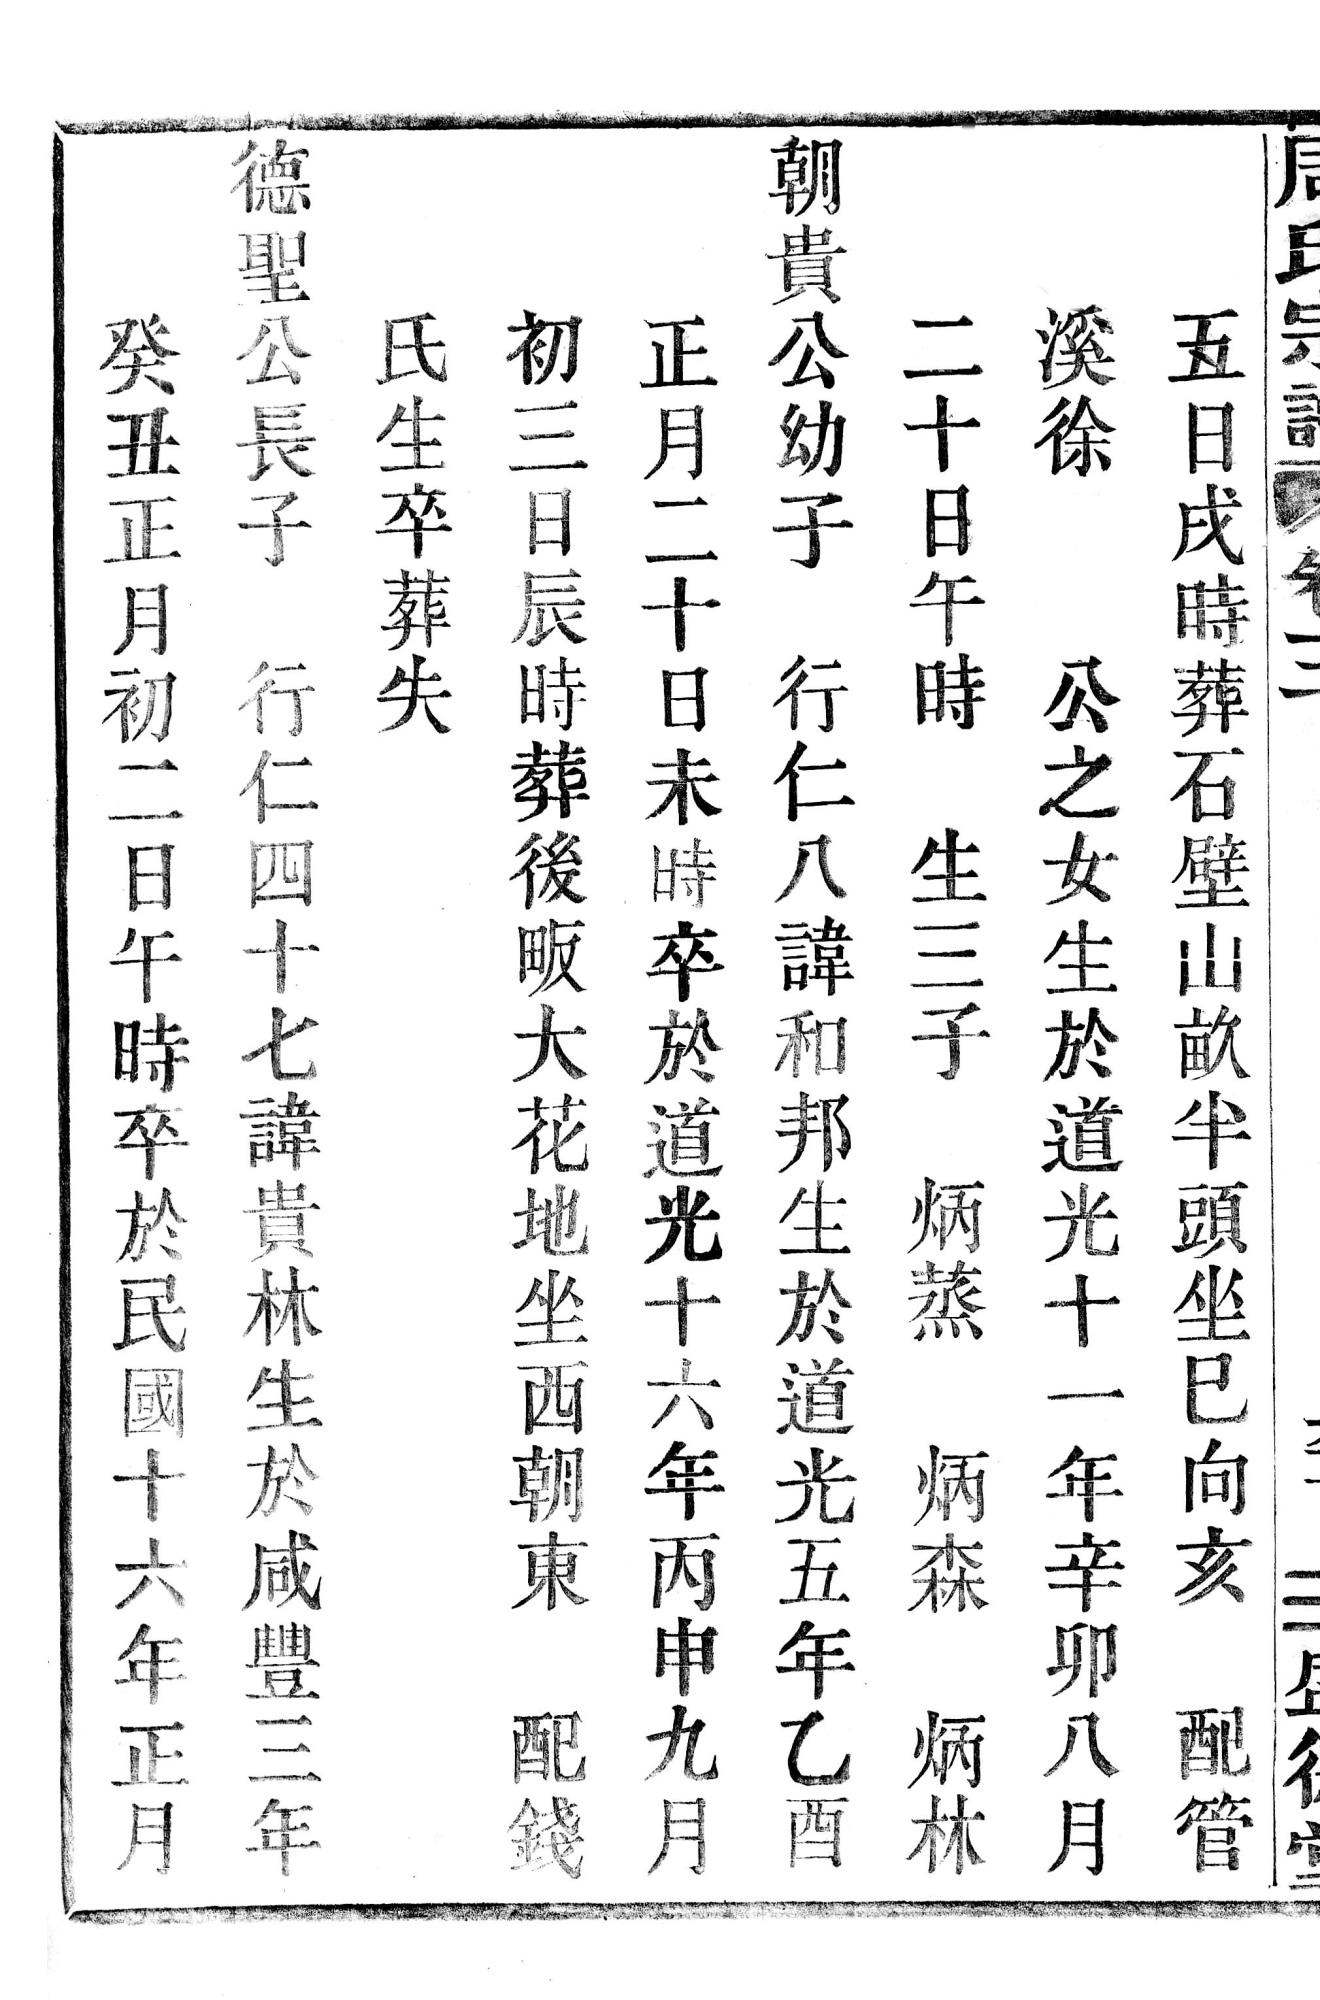 周氏宗譜 卷三 三盛德堂
五日戌時葬石壁山畝半頭坐巳向亥 配管
溪徐 公之女生於道光十一年辛卯八月
二十日午時 生三子 炳蒸 炳森 炳林
朝貴公幼子 行仁八諱和邦生於道光五年乙酉
正月二十日未時卒於道光十六年丙申九月
初三日辰時葬後畈大花地坐西朝東 配錢
氏生卒葬失
德聖公長子 行仁四十七諱貴林生於咸豐三年
癸丑正月初二日午時卒於民國十六年正月